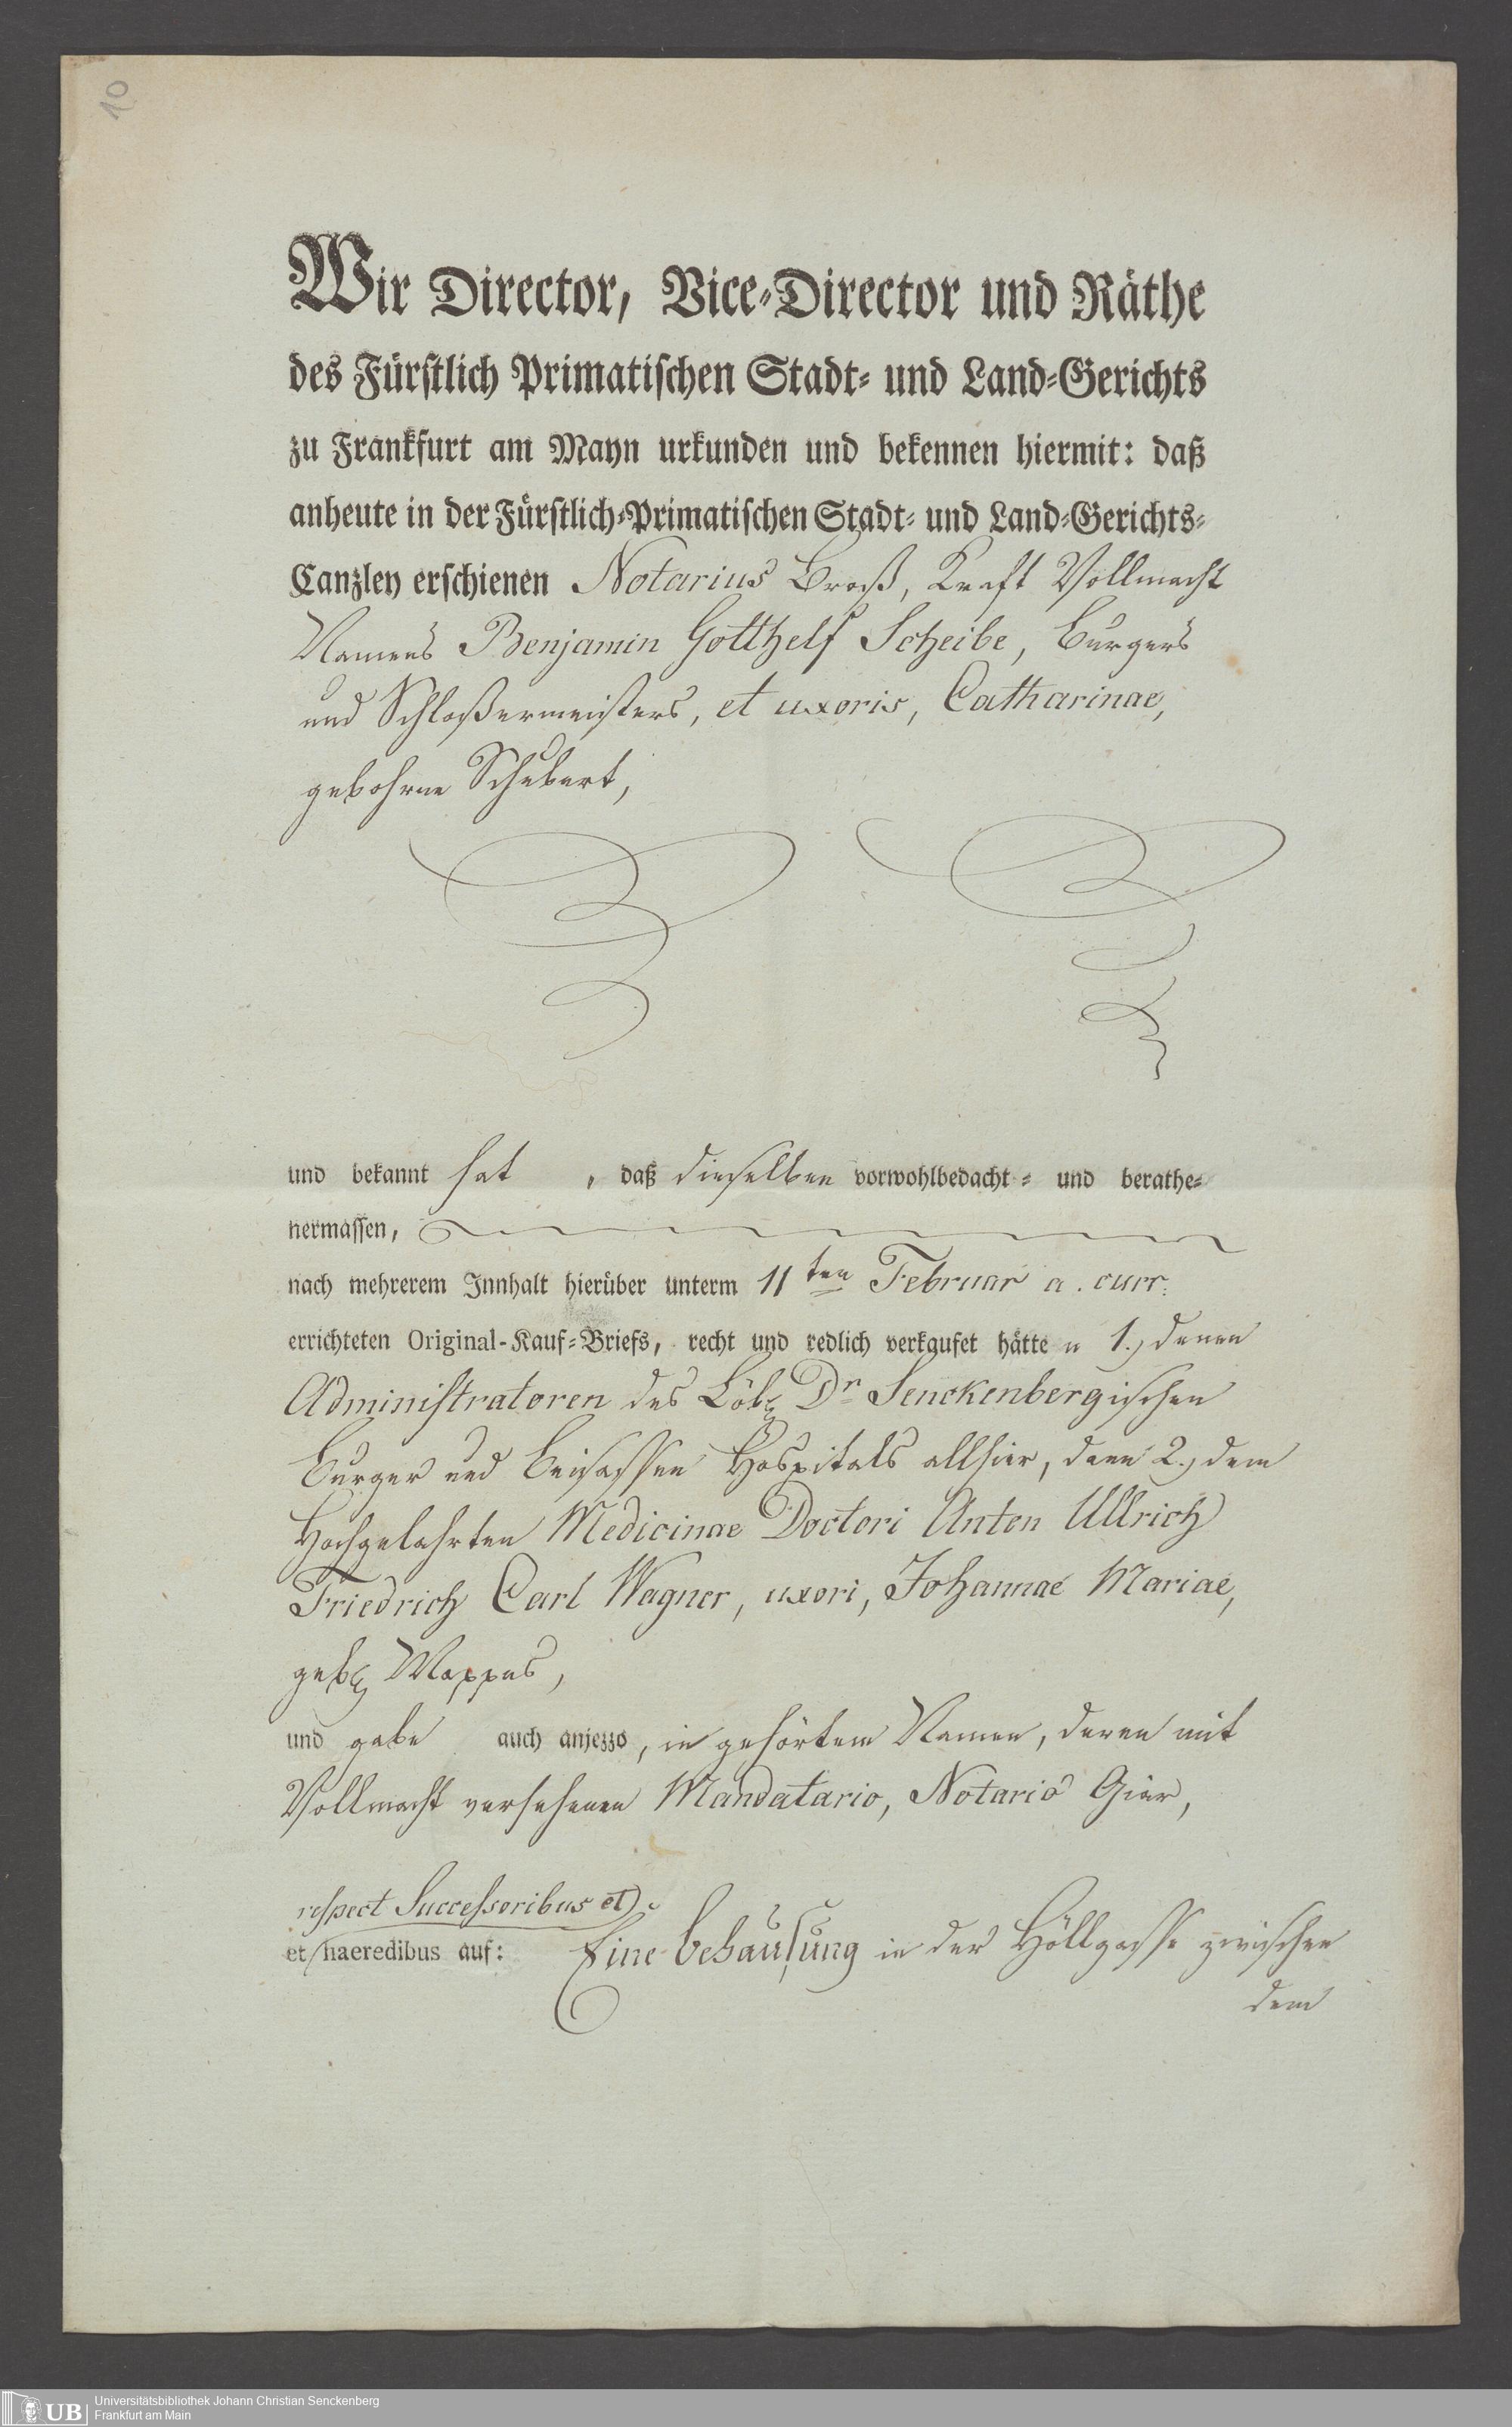 10
Wir Director, Vice-Director und Räthe
des Fürstlich Primatischen Stadt- und Land-Gerichts
zu Frankfurt am Mayn urkunden und bekennen hiermit: daß
anheute in der Fürstlich-Primatischen Stadt- und Land-Gerichts-
Canzley erschienen Notarius Broß, Kraft Vollmacht
Namens Benjamin Gotthelf Scheibe, Burgers
und Schloßermeisters, et uxoris, Catharinae,
gebohrne Schubert,
und bekannt hat , daß dieselben vorwohlbedacht- und berathe-
nermassen,
nach mehrerem Innhalt hierüber unterm 11ten Februar a. curr.
errichteten Original-Kauf-Briefs, recht und redlich verkaufet hätten 1.) denen
Administratoren des Löbl Dr Senckenbergischen
Burger und Beisassen Hospitals allhier, dann 2.) dem
Hochgelahrten Medicinae Doctori Anton Ullrich
Friedrich Carl Wagner, uxori, Johannae Mariae,
geb Mappes,
und gabe auch anjezzo, in gehörtem Namen, deren mit
Vollmacht versehenen Mandatario, Notario Gier,
respect Successoribus et
et haeredibus auf: Eine Behausung in der Höllgasse zwischen
dem
UB
Universitätsbibliothek Johann Christian Senckenberg
Frankfurt am Main